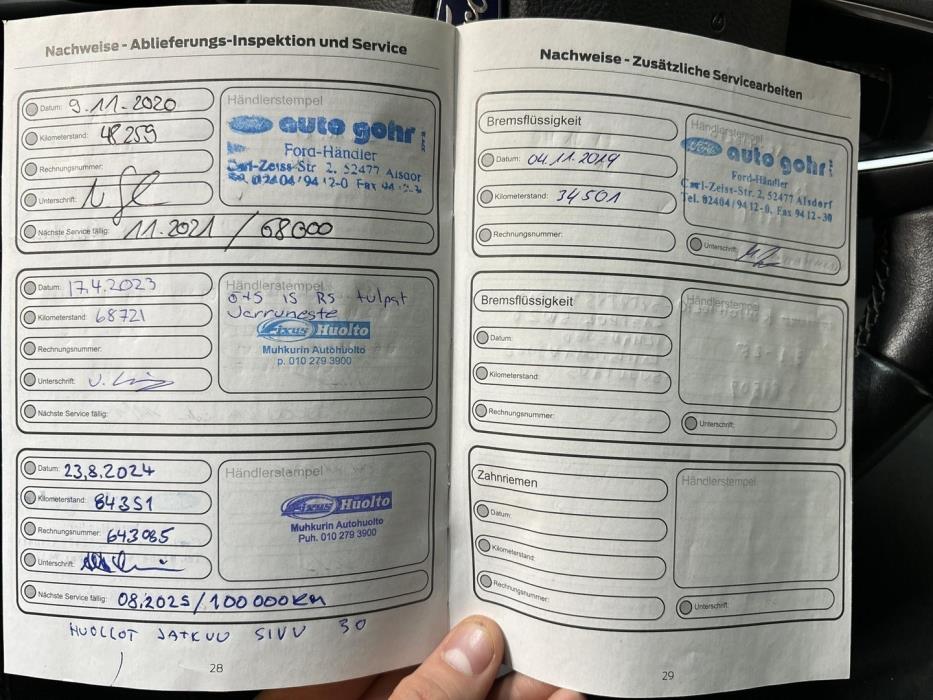 Nachweise - Ablieferungs-Inspektion und Service
Datum: 9.11.2020
Kilometerstand: 48259
Rechnungsnummer:
Unterschrift:
Nächste Service fällig: 11.2021 / 68000
Händlerstempel
auto gohr
Ford-Händler
Carl-Zeiss-Str. 2, 52477 Alsdorf
02404/94 12-0 Fax
Datum: 17.4.2023
Kilometerstand: 68721
Rechnungsnummer:
Unterschrift:
Nächste Service fällig:
Händlerstempel
Jarruneste
Fixus Huolto
Muhkurin Autohuolto
p. 010 279 3900
Datum: 23.8.2024
Kilometerstand: 84351
Rechnungsnummer: 643085
Unterschrift:
Nächste Service fällig: 08.2025/100 000KM
Händlerstempel
Fixus Huolto
Muhkurin Autohuolto
Puh. 010 279 3900
HUOLLOT JATKUU SIVU 30
28
Nachweise - Zusätzliche Servicearbeiten
Bremsflüssigkeit
Datum: 04.11.2019
Kilometerstand: 34501
Rechnungsnummer:
Händlerstempel
auto gohr
Ford-Händler
Carl-Zeiss-Str. 2, 52477 Alsdorf
Tel. 02404/94 12-0, Fax 94 12-30
Unterschrift:
Bremsflüssigkeit
Datum:
Kilometerstand:
Rechnungsnummer:
Händlerstempel
Unterschrift:
Zahnriemen
Datum:
Kilometerstand:
Rechnungsnummer:
Händlerstempel
Unterschrift:
29